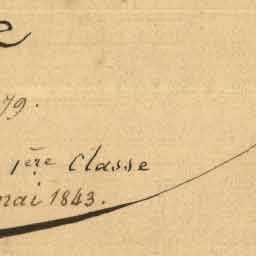 79.
1ère Classe
mai 1843.